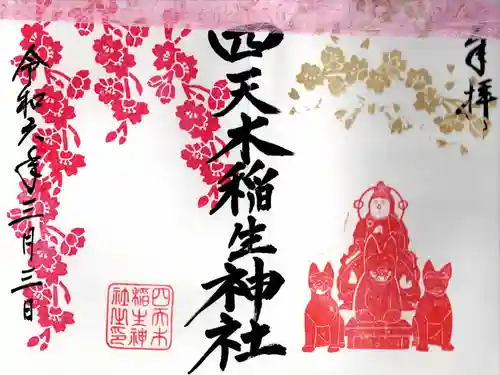 奉拝
四天木稲生神社
令和六年三月三日
四天木
稲生神
社之印